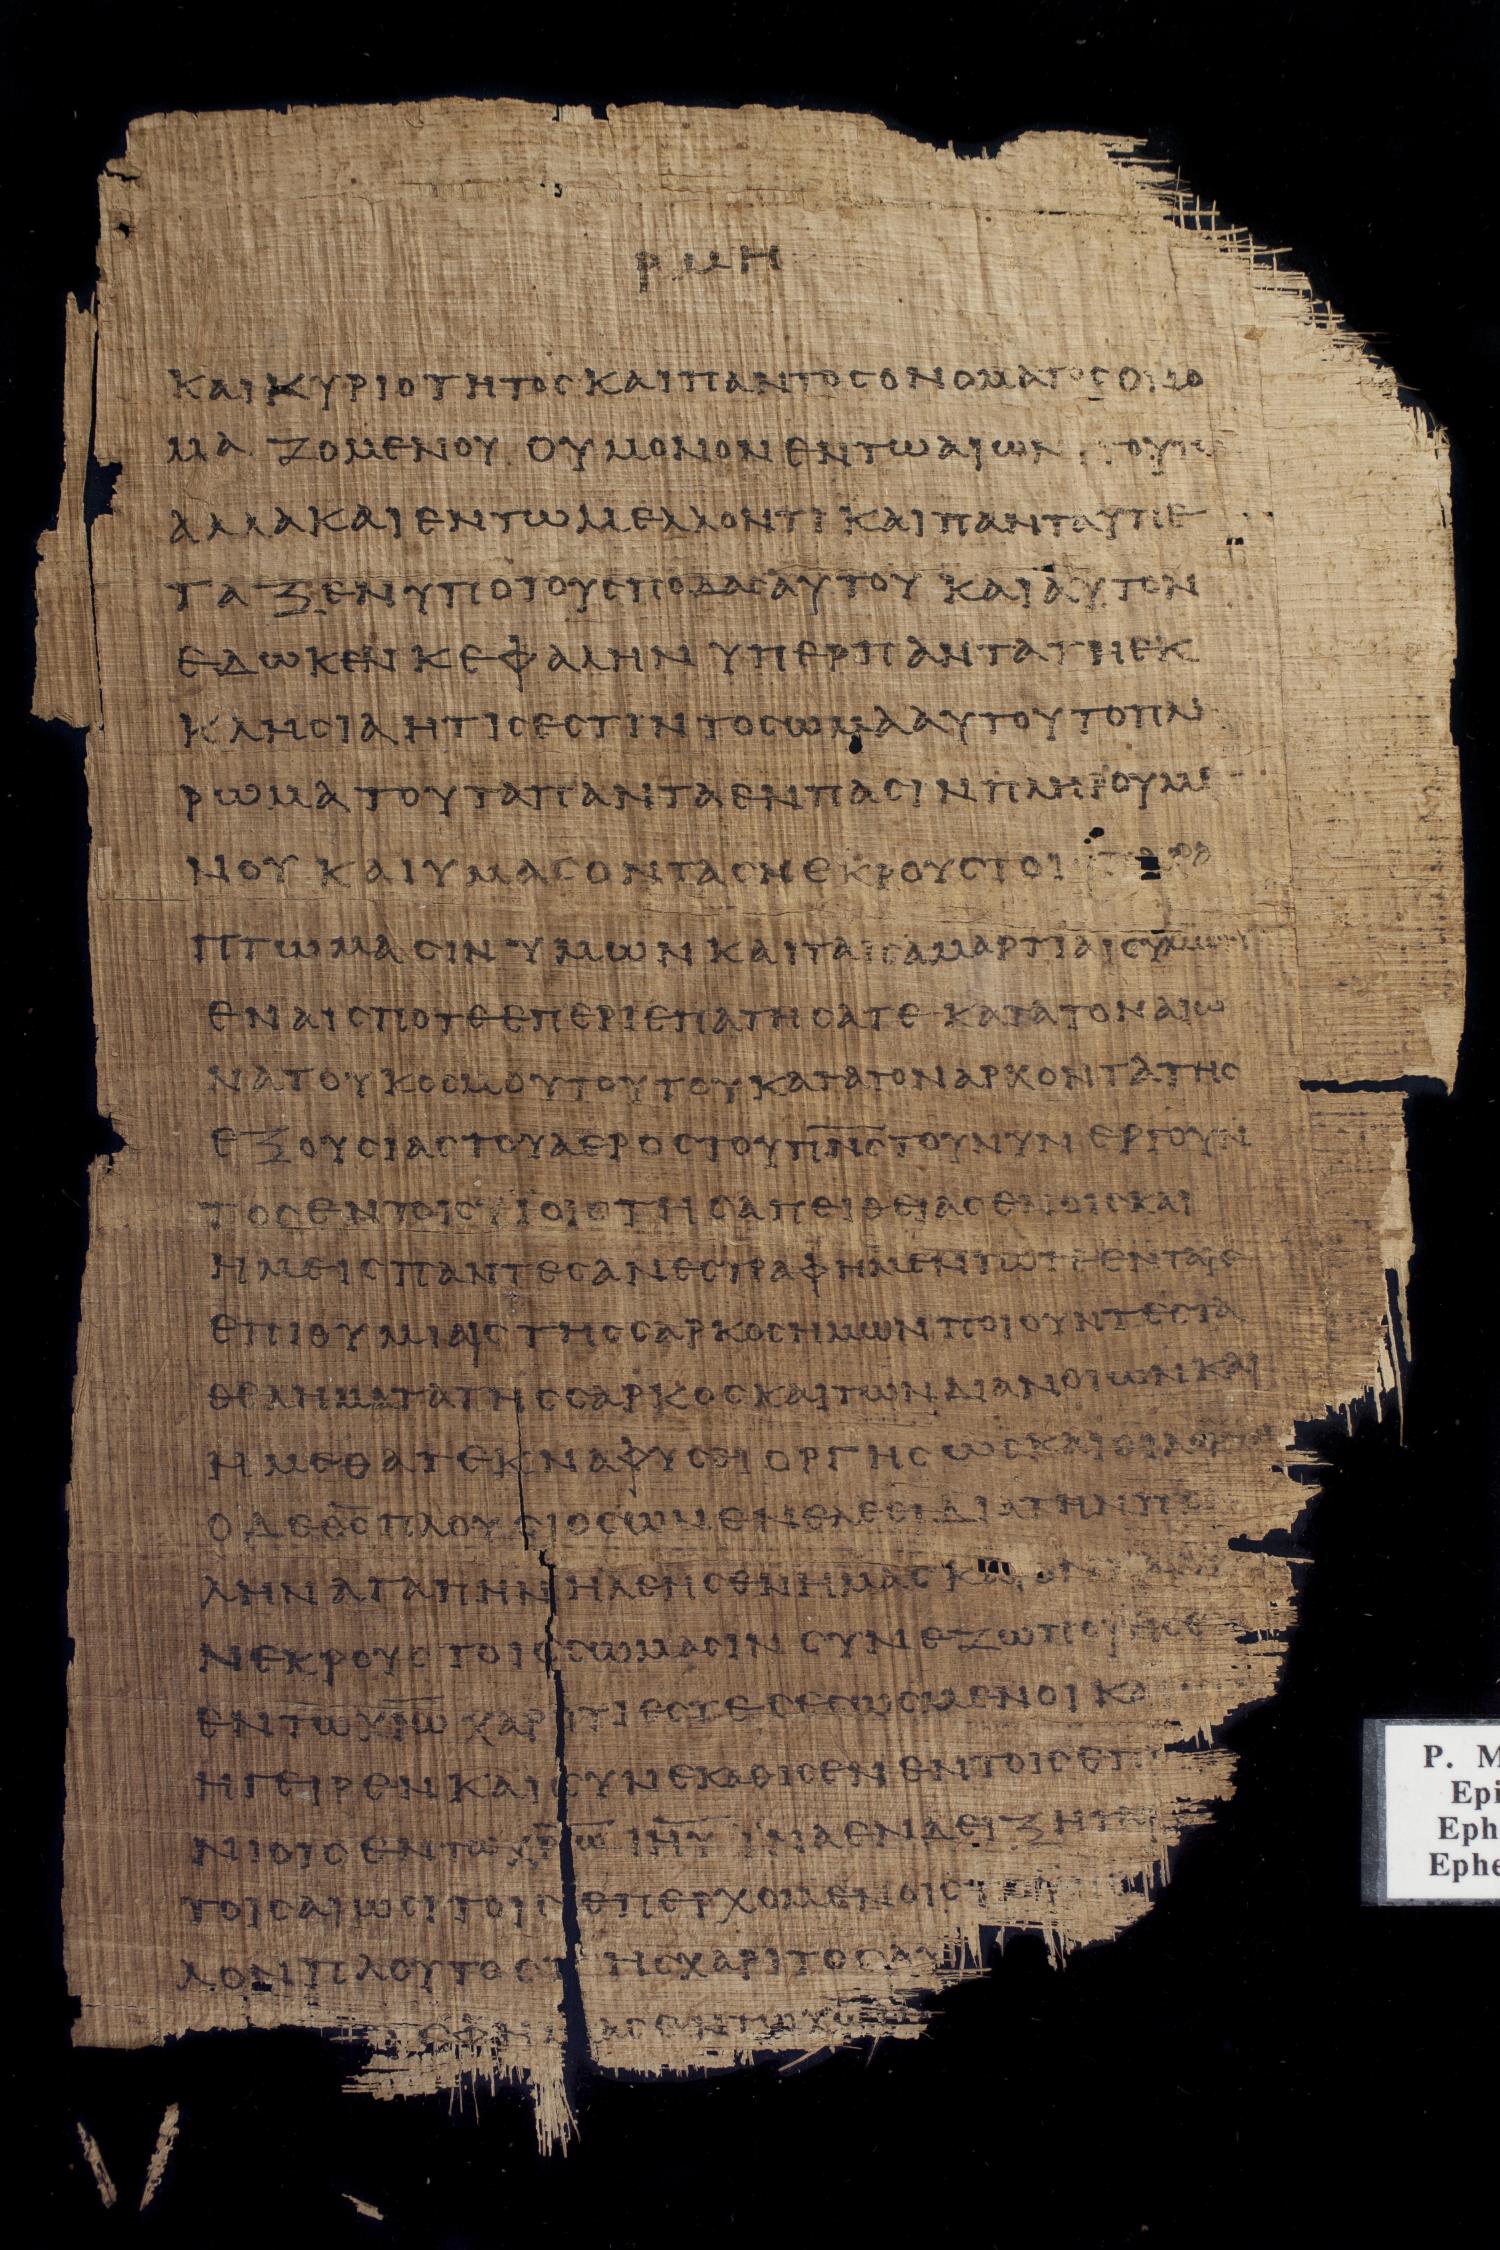 ΡΜΗ
ΚΑΙ ΚΥΡΙΟΤΗΤΟϹ ΚΑΙ ΠΑΝΤΟϹ ΟΝΟΜΑΤΟϹ
ΜΑΖΟΜΕΝΟΥ ΟΥ ΜΟΝΟΝ ΕΝ ΤΩ
ΑΛΛΑ ΚΑΙ ΕΝ ΤΩ ΜΕΛΛΟΝΤΙ ΚΑΙ ΠΑΝΤΑ ΥΠΕ
ΤΑΞΕΝ ΥΠΟ ΤΟΥϹ ΠΟΔΑϹ ΑΥΤΟΥ ΚΑΙ ΑΥΤΟΝ
ΕΔΩΚΕΝ ΚΕΦΑΛΗΝ ΥΠΕΡ ΠΑΝΤΑ ΤΗ ΕΚ
ΚΛΗϹΙΑ ΗΤΙϹ ΕϹΤΙΝ ΤΟ ϹΩΜΑ ΑΥΤΟΥ ΤΟ
ΡΩΜΑ ΤΟΥ ΤΑ ΠΑΝΤΑ ΕΝ ΠΑϹΙΝ ΠΛΗΡΟΥΜΕ
ΝΟΥ ΚΑΙ ΥΜΑϹ ΟΝΤΑϹ ΝΕΚΡΟΥϹ
ΠΤΩΜΑϹΙΝ ΥΜΩΝ ΚΑΙ ΤΑΙϹ ΑΜΑΡΤΙΑΙϹ ΥΜΩΝ
ΕΝ ΑΙϹ ΠΟΤΕ ΕΠΕΡΙΕΠΑΤΗϹΑΤΕ ΚΑΤΑ ΤΟΝ ΑΙΩ
ΝΑ ΤΟΥ ΚΟϹΜΟΥ ΤΟΥΤΟΥ ΚΑΤΑ ΤΟΝ ΑΡΧΟΝΤΑ ΤΗϹ
ΕΞΟΥϹΙΑϹ ΤΟΥ ΑΕΡΟϹ ΤΟΥ Π̅Ν̅Ϲ̅ ΤΟΥ ΝΥΝ ΕΡΓΟΥΝ
ΤΟϹ ΕΝ ΤΟΙϹ ΥΙΟΙϹ ΤΗϹ ΑΠΕΙΘΕΙΑϹ ΕΝ ΟΙϹ ΚΑΙ
ΗΜΕΙϹ ΠΑΝΤΕϹ ΑΝΕϹΤΡΑΦΗΜΕΝ ΕΝ ΤΑΙϹ
ΕΠΙΘΥΜΙΑΙϹ ΤΗϹ ϹΑΡΚΟϹ ΗΜΩΝ ΠΟΙΟΥΝΤΕϹ ΤΑ
ΘΕΛΗΜΑΤΑ ΤΗϹ ϹΑΡΚΟϹ ΚΑΙ ΤΩΝ ΔΙΑΝΟΙΩΝ ΚΑΙ
ΗΜΕΘΑ ΤΕΚΝΑ ΦΥϹΕΙ ΟΡΓΗϹ ΩϹ ΚΑΙ ΟΙ
Ο ΔΕ Θ̅Ϲ̅ ΠΛΟΥϹΙΟϹ ΩΝ ΕΝ ΕΛΕΕΙ ΔΙΑ ΤΗΝ
ΛΗΝ ΑΓΑΠΗΝ ΗΛΕΗϹΕΝ ΗΜΑϹ
ΝΕΚΡΟΥϹ ΤΟΙϹ ϹΩΜΑϹΙΝ ϹΥΝΕΖΩΠΟΙΗϹΕ
ΕΝ ΤΩ Χ̅Ρ̅Ω̅ ΧΑΡΙΤΙ ΕϹΤΕ ϹΕϹΩϹΜΕΝΟΙ
ΗΓΕΙΡΕΝ ΚΑΙ ϹΥΝΕΚΑΘΙϹΕΝ ΕΝ ΤΟΙϹ
ΝΙΟΙϹ ΕΝ ΤΩ Χ̅Ρ̅Ω̅ Ι̅Η̅Υ̅ ΙΝΑ ΕΝΔΕΙΞΗΤΑΙ
ΤΟΙϹ ΑΙΩϹΙ ΤΟΙϹ ΕΠΕΡΧΟΜΕΝΟΙϹ
ΛΟΝ ΠΛΟΥΤΟϹ ΤΗϹ ΧΑΡΙΤΟϹ
P. M
Epi
Eph
Ephe